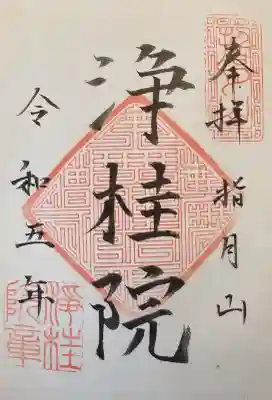 奉拝
指月山
浄桂院
令和五年
浄桂院章